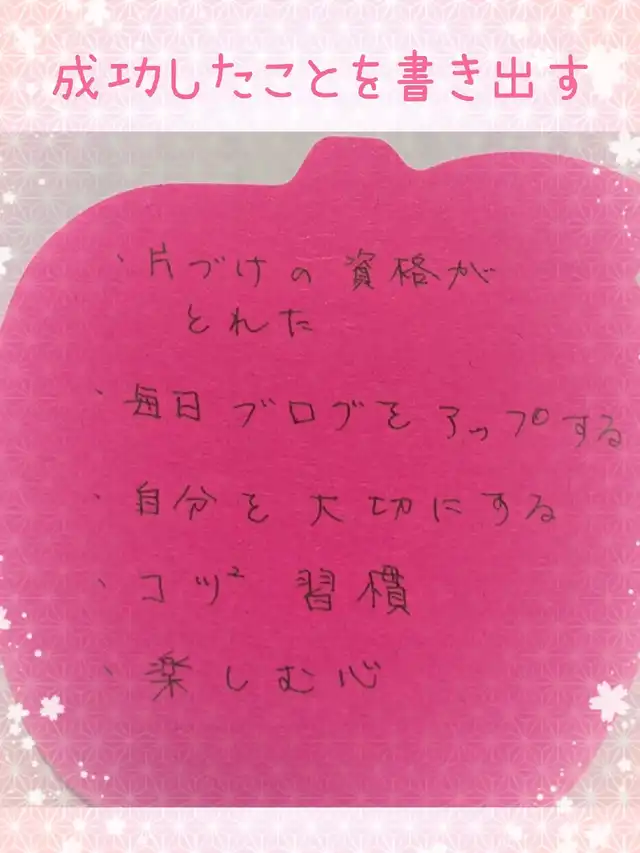 成功したことを書き出す
・片づけの資格が
とれた
・毎日ブログをアップする
・自分を大切にする
・コツ² 習慣
・楽しむ心